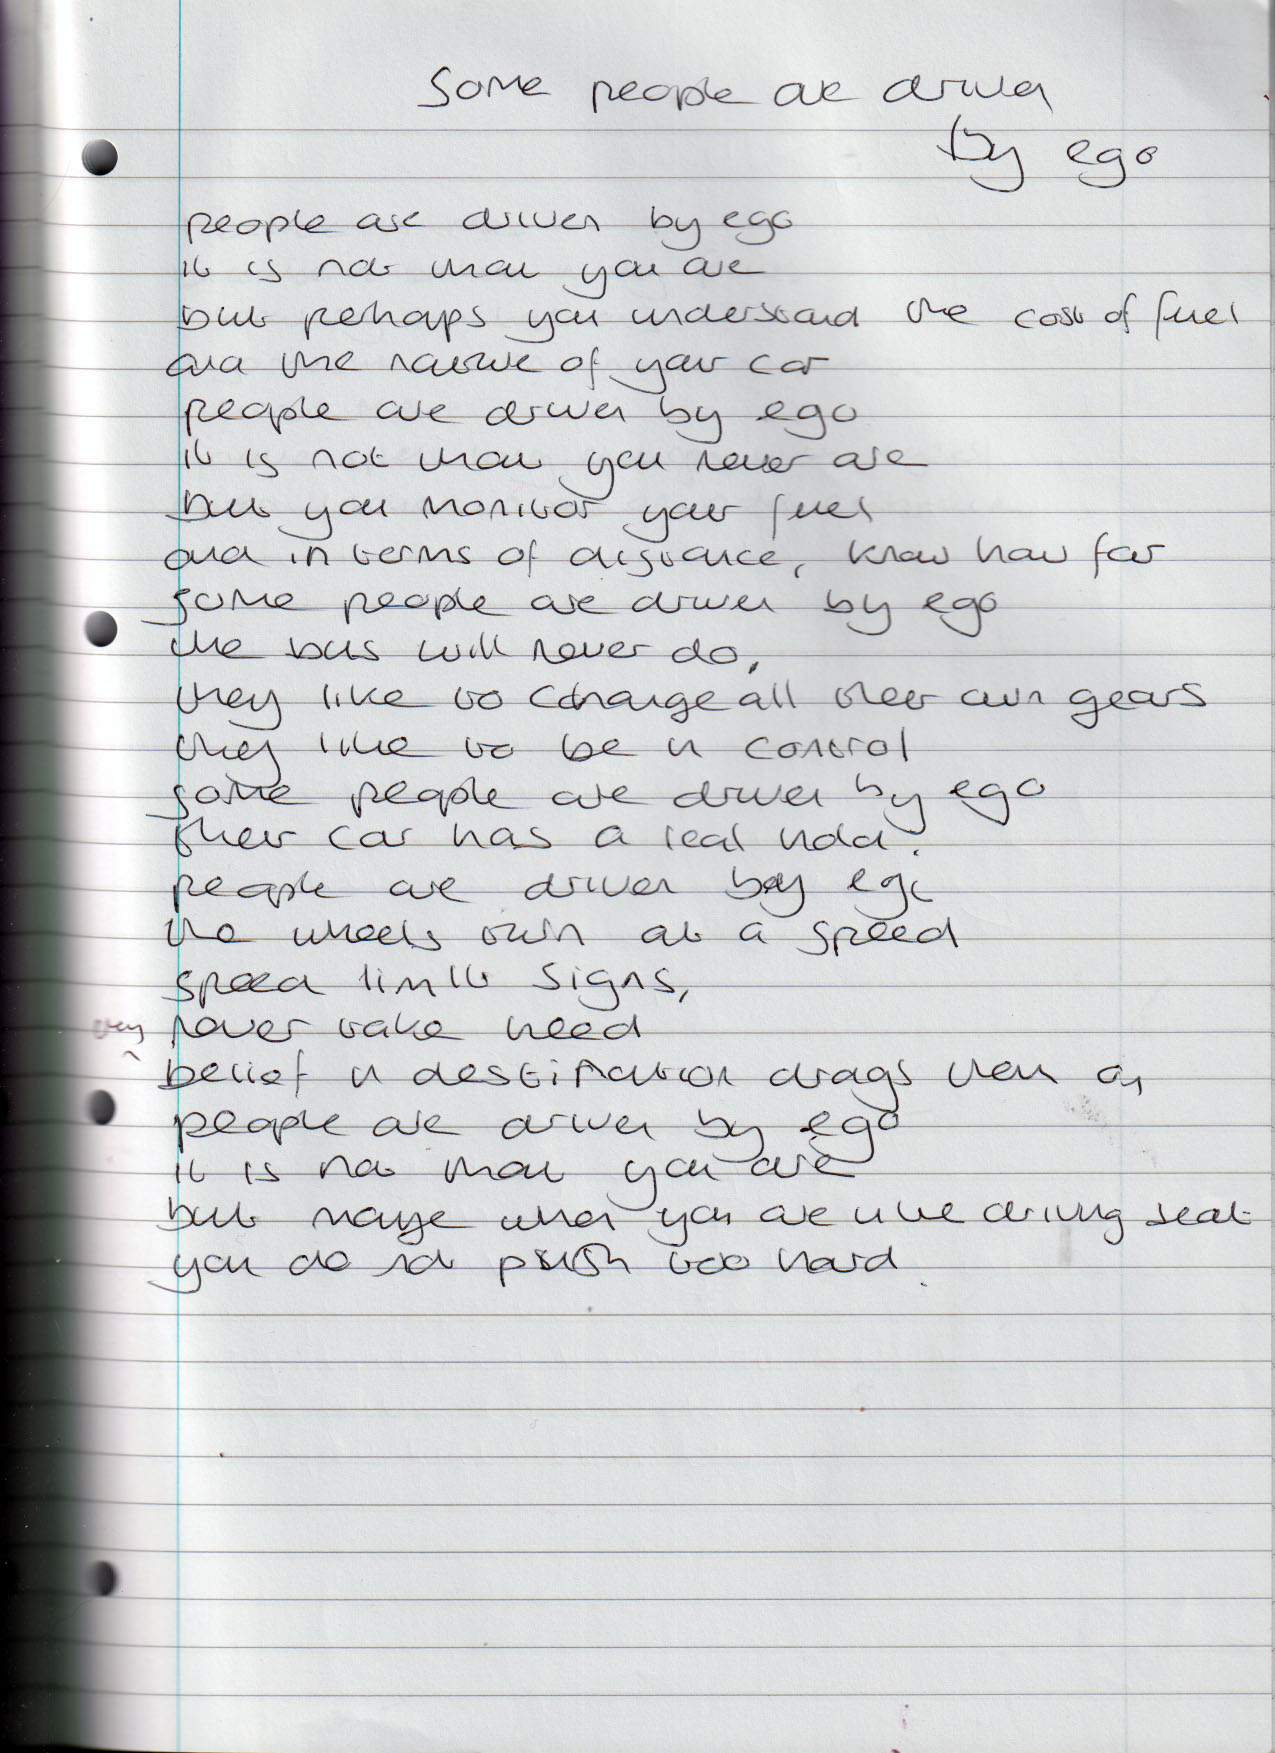 Some people are driven
by ego
people are driven by ego
it is not that you are
but perhaps you understand the cost of fuel
and the nature of your car
people are driven by ego
it is not that you never are
but you monitor your fuel
and in terms of distance, know how far
some people are driven by ego
the bus will never do,
they like to change all their own gears
they like to be in control
some people are driven by ego
their car has a real hold.
people are driven by ego
the wheels turn at a speed
speed limit signs,
they never take heed
belief in destination drags them on
people are driven by ego
it is not that you are
but maybe when you are in the driving seat
you do not push too hard.